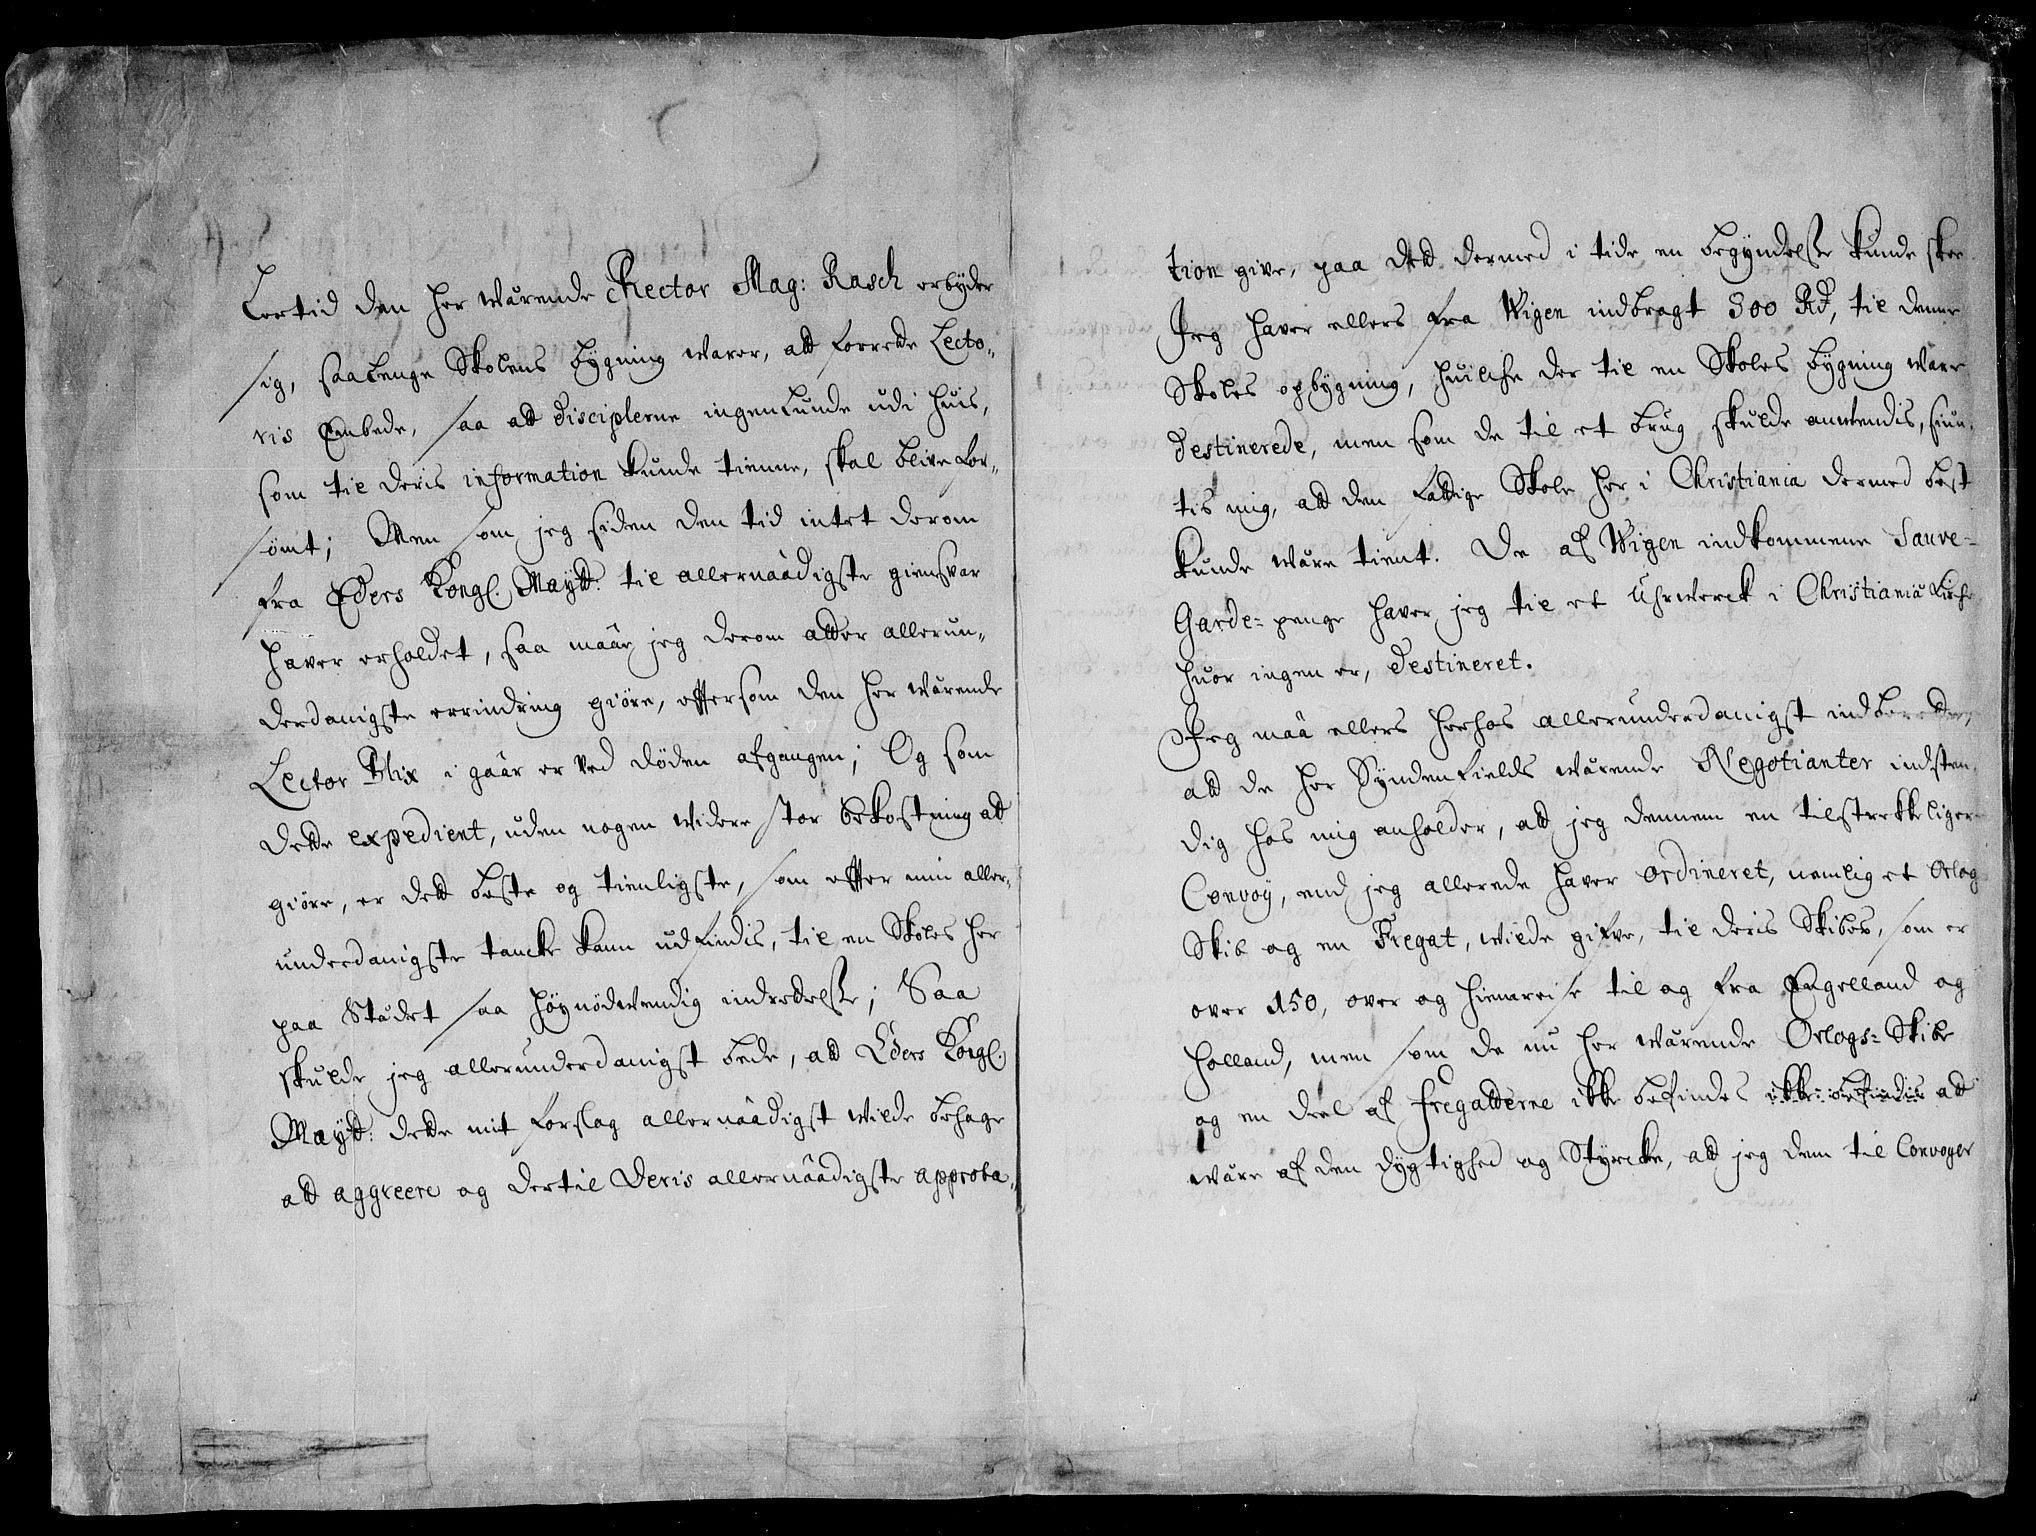 Lertid den her wärende Rector Mag: Rasch erbyder
sig, saalenge Skolens bygning warer, att forrette Lecto„
ris Embede, saa att Disciplerne ingenlunde udi huis,
som til deris information kunde tienne, skal blive for„
sømt; Men som jeg siden den tid intet derom
fra Eders Kongl. Mayst: til allernaadigste giensvar
haver erholdet, saa maa jeg derom atter allerun„
derdanigste errindring giöre, effter som den her wärende
Lector Blix i gaar er ved döden afgangen; Og som
dette expedient, uden nogen widere stor bekostning att
giöre, er dett beste og tienligste, som effter min aller„
underdanigste tancke kann udfindis, til en Skoles her
paa Stædet saa höynödwendig indrettelsse; Saa
skulde jeg allerunderdanigst bede, att Eders Kongl.
Mayst: dette mit forslag allernaadigst wilde behage
att aggreere og dertil Deris allernaadigste approba„
tion give, paa dett dermed i tide en begyndelsse kunde skee
Jeg haver ellers fra Wigen indbragt 300 Rd, til denne
Skoles opbygning, huilche der til en Skoles bygning ware
destinerede, men som de til et brug skulde anwendis, siun„
tis mig, att den fattige Skole her i Christiania dermed best
kunde wäre tient. De af Wigen indkommene Sauve=
Garde=penge haver jeg til et Uhrwerck i Christiania Kirche
huor ingen er, destineret.
Jeg maa ellers herhos allerunderdanigst indberette,
att de her Syndenfields wärende Negotianter indsten„
dig hos mig anholder, att jeg dennem en tilstrekkeliger
Convoy, end jeg allerede haver ordineret, nemlig et Orlog
Skib og en Fregat, wilde gifve, til deris Skibes, som er
over 150, over og hiemreise til og fra Engelland og
Holland, men som de nu her wärende Orlogs=Skibe
og en deel af fregatterne ikke befindes ikke befindis att
wäre af den dygtighed og Styrcke, att jeg dem til Convoyer